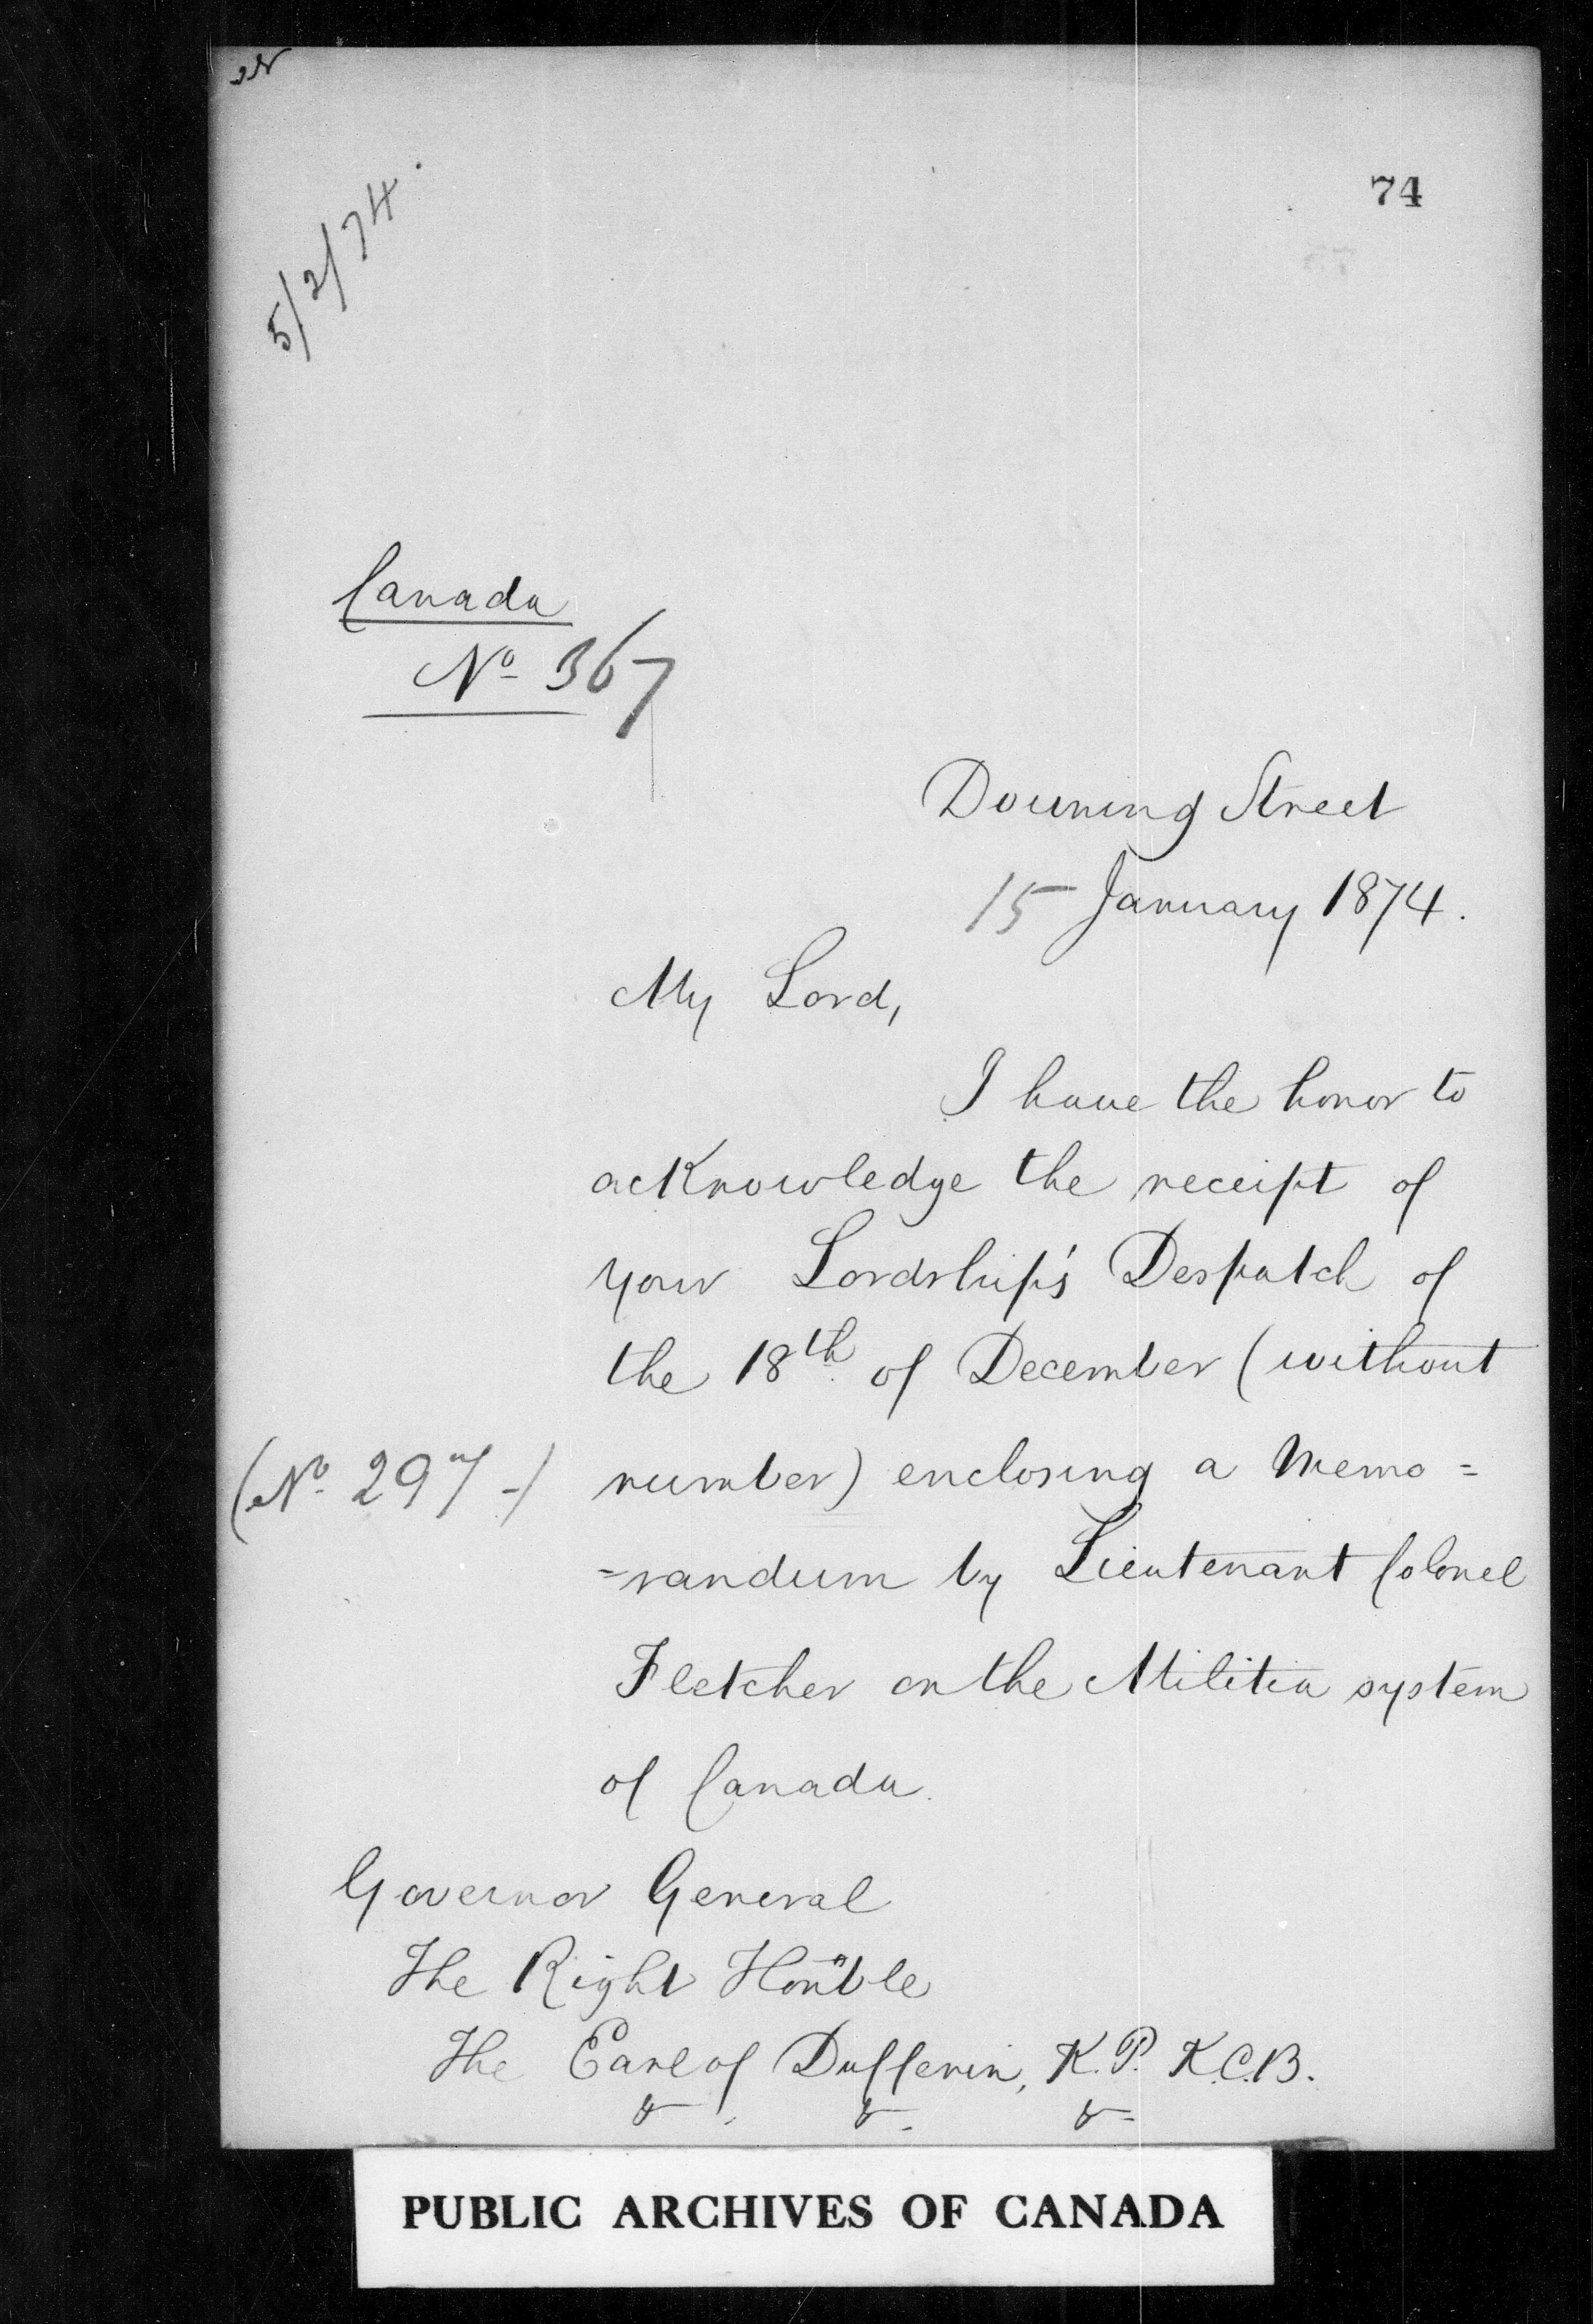 74
5/2/74.
Canada
No 367
Downing Street
15 January 1874.
My Lord,
I have the honor to
acKnowledge the receipt of
your Lordship's Despatch of
the 18th of December (without
(No. 297-)
number) enclosing a Memo=
=randum by Lieutenant Colonel
Fletcher on the Militia system
of Canada.
Governor General
The Right Honble
The Earl of Dufferin, K.P. K.C.B.
& & &
PUBLIC ARCHIVES OF CANADA